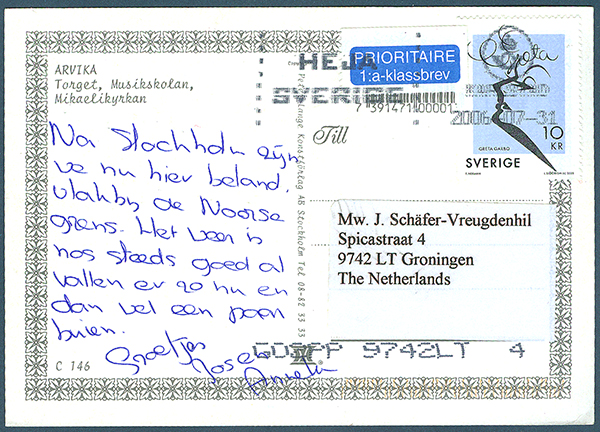 ARVIKA
Torget, Musikskolan,
Mikaelikyrkan
Na Stockholm zijn
we nu hier beland.
vlakbij de Noorse
grens. Het weer is
nog steeds goed al
vallen er zo nu en
dan wel een paar
buien.
Groetjes
C 146
HEJA
SVERIGE
PRIORITAIRE
1:a-klassbrev
7 391471 000001
Till
2006-07-31
GRETA GARBO
10
KR
SVERIGE
Konstförlag AB Stockholm Tel 08-82 33 33
Mw. J. Schäfer-Vreugdenhil
Spicastraat 4
9742 LT Groningen
The Netherlands
9742LT 4